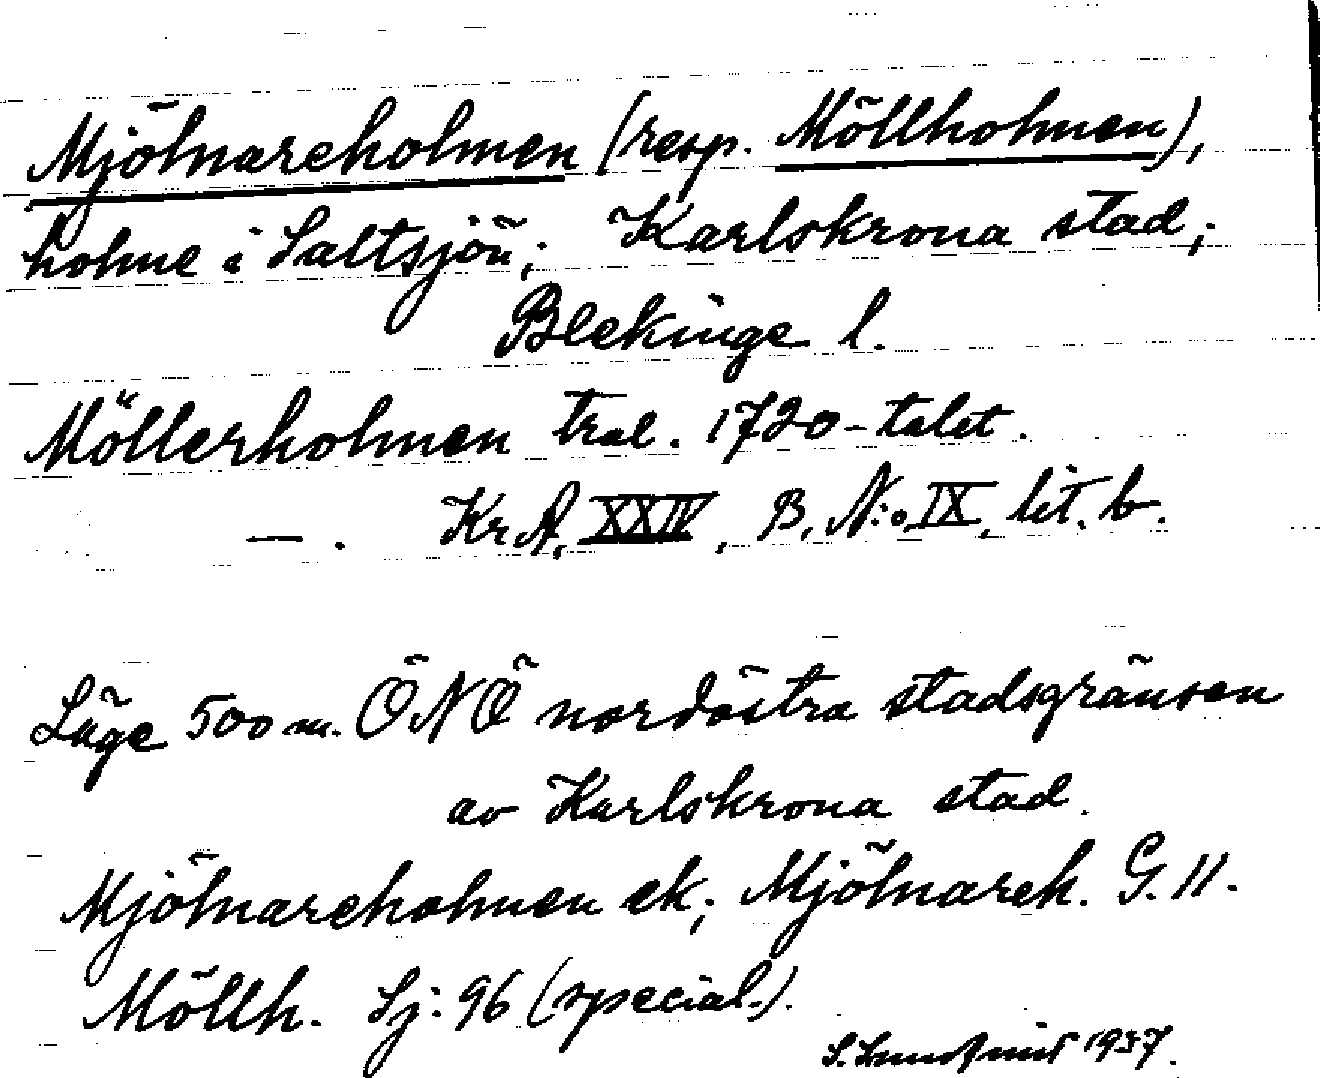 Mjölnareholmen (resp. Möllholmen),
holme i Saltsjön; Karlskrona stad;
Blekinge l.
Möllerholmen tral. 1720-talet.
— . KrA, XXIV, B, N:o IX, lit. b.
Läge 500 m. ÖNÖ nordöstra stadsgränsen
av Karlskrona stad.
Mjölnareholmen ek; Mjölnareh. G. 11.
Möllh. Sj: 96 (special.).
S. 1937.